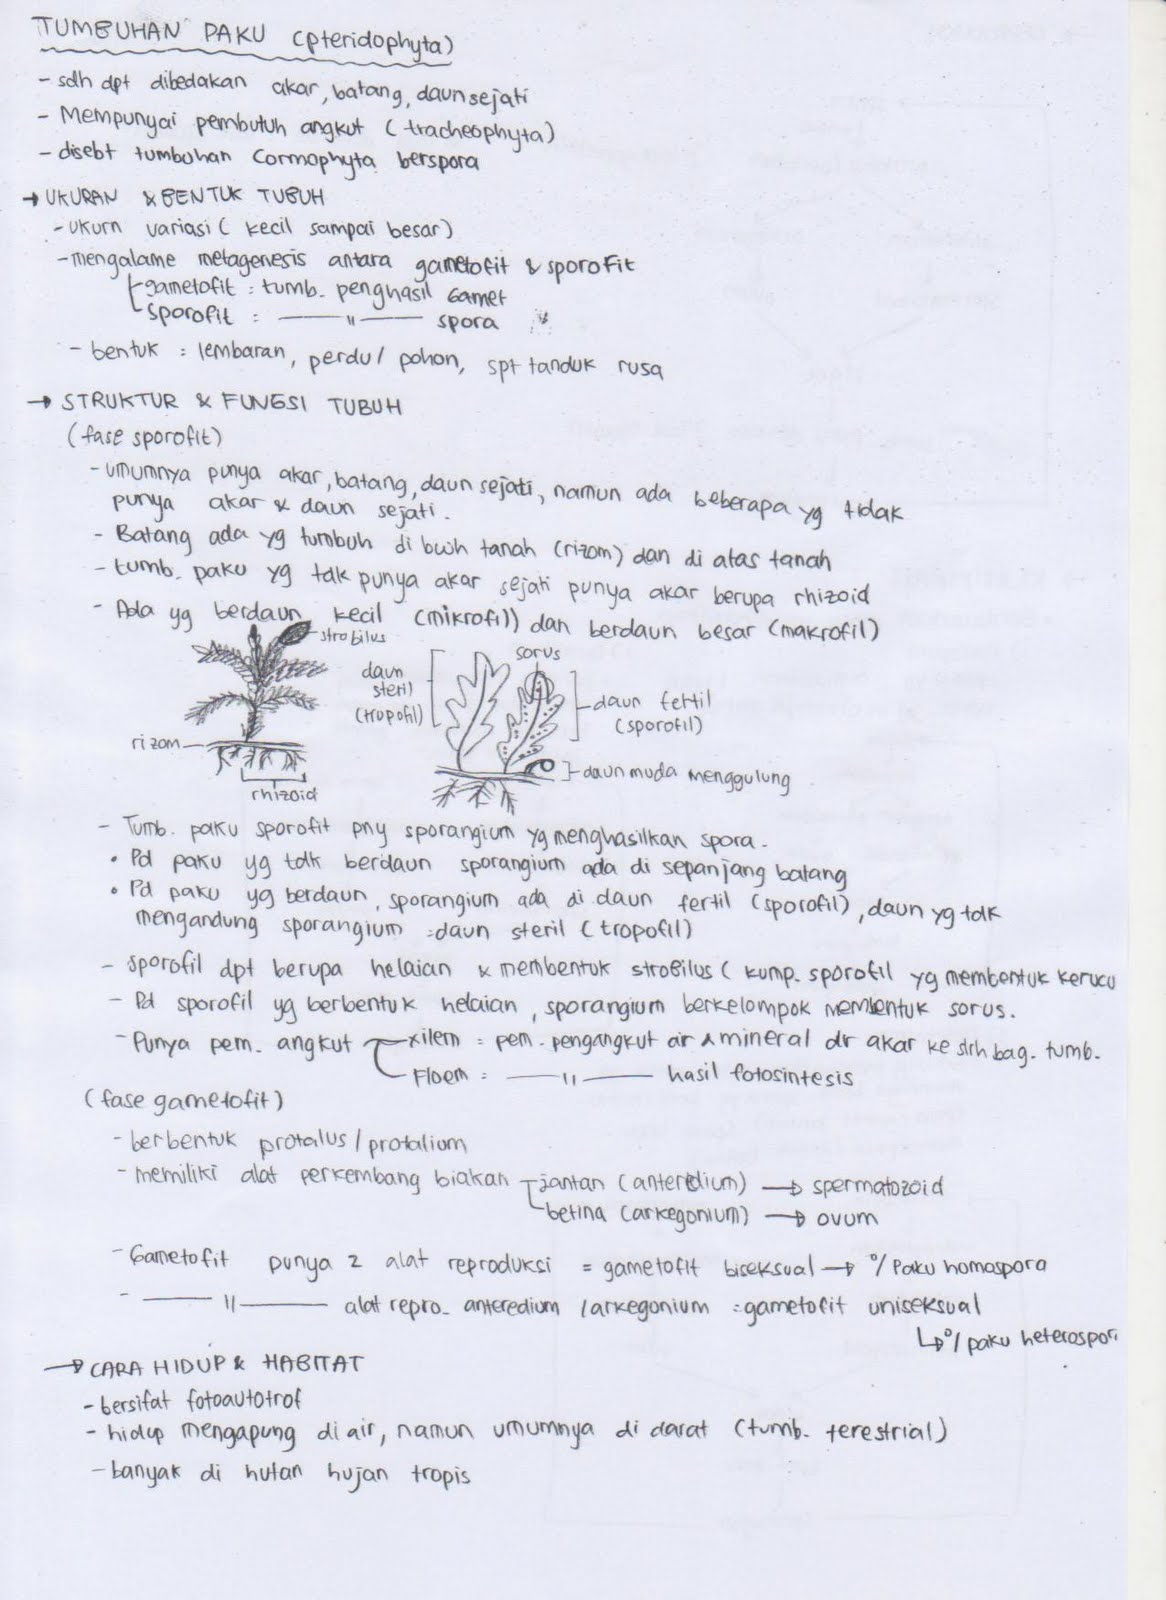 TUMBUHAN PAKU (pteridophyta)
- sdh dpt dibedakan akar, batang, daun sejati
- Mempunyai pembutuh angkut (tracheophyta)
- disebt tumbuhan Cormophyta berspora
→ UKURAN & BENTUK TUBUH
- ukurn variasi ( kecil sampai besar)
- mengalame metagenesis antara gametofit & sporofit
gametofit : tumb. penghasil Gamet
Sporofit : —— " —— spora
- bentuk : lembaran, perdu / pohon, spt tanduk rusa
→ STRUKTUR & FUNGSI TUBUH
(fase sporofit)
- umumnya punya akar, batang, daun sejati, namun ada beberapa yg tidak
punya akar & daun sejati.
- Batang ada yg tumbuh di bwh tanah (rizom) dan di atas tanah
- tumb. paku yg tdk punya akar sejati punya akar berupa rhizoid
- Ada yg berdaun kecil (mikrofil) dan berdaun besar (makrofil)
strobilus
rizom
rhizoid
sorus
daun
steril
(tropofil)
daun fertil
(sporofil)
daun muda menggulung
- Tumb. paku sporofit pny sporangium yg menghasilkan spora.
• Pd paku yg tdk berdaun sporangium ada di sepanjang batang
• Pd paku yg berdaun, sporangium ada di daun fertil (sporofil), daun yg tdk
mengandung sporangium = daun steril (tropofil)
- sporofil dpt berupa helaian & membentuk strobilus ( kump. sporofil yg membentuk kerucu
- Pd sporofil yg berbentuk helaian, sporangium berkelompok membentuk sorus.
- Punya pem. angkut xilem = pem. pengangkut air & mineral dr akar ke slrh bag. tumb.
Floem = —— " —— hasil fotosintesis
(fase gametofit)
- berbentuk protalus / protalium
- memiliki alat perkembang biakan jantan (anteredium) → spermatozoid
betina (arkegonium) → ovum
- Gametofit punya 2 alat reproduksi = gametofit biseksual → % paku homospora
- —— " —— alat repro. anteredium / arkegonium = gametofit uniseksual
↳ % paku heterospor
→ CARA HIDUP & HABITAT
- bersifat fotoautotrof
- hidup mengapung di air, namun umumnya di darat (tumb. terestrial)
- banyak di hutan hujan tropis